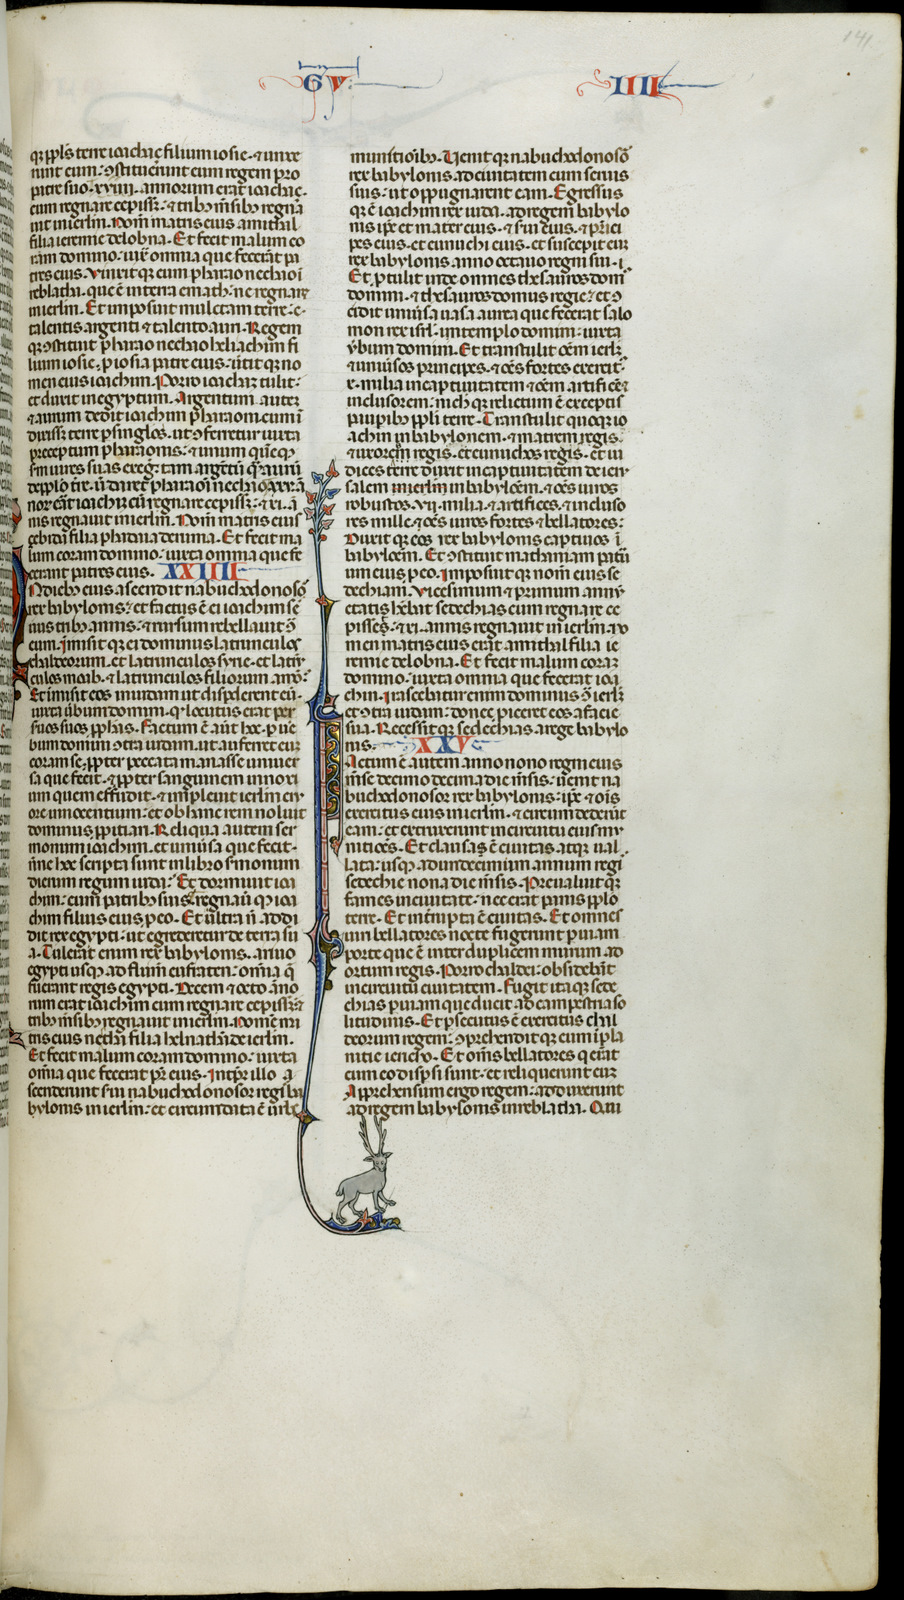 141
GV IIII
q̨ ppl̃s terre ioachaç filium iosie · ⁊ unxe
runt eum : ɔstituerunt eum regem pro
patre suo · xxiij · annorum erat ioachaç ·
cum regnare cepiss̃ : ⁊ trib᷒ m̃sib᷒ regna
uit in ierl̃m · Nom̃ matris eius amithal
filia ieremie de lobna · Et fecit malum co
ram domino : iux̃ omnia que fecerãt pa
tres eius · Vinxit q̨ eum pharao nechao ĩ
reblatha · que ẽ in terra emath : ne regnaret
in ierl̃m · Et imposuit mulctam terre : c ·
talentis argenti ⁊ talento auri · Regem
q̨ ɔstituit pharao nechao heliachim fi
lium iosie · p iosia patre eius : ũtit q̨ no
men eius ioachim · Porro ioachaz tulit :
et duxit in egyptum · Argentum autez
⁊ aurum dedit ioachim pharaoni · cum ĩ
dixiss̃ terre p singl̃os · ut ɔferretur iuxta
preceptum pharaonis : ⁊ unum quẽq̨
s̃m uires suas exeg̃ : tam argẽtũ q̃ aurũ
de pplo tr̃e · ũ daret pharaoĩ nechao · xxv · ã
norẽ erãt ioachiz cũ regnare cepiss̃ : ⁊ xi · ã
nis regnauit in ierl̃m · Nom̃ matris eius
zebida filia phadaia de ruma · Et fecit ma
lum coram domino : iuxta omnia que fe
cerant patres eius · XXIIII
In dieb᷒ eius ascendit nabuchodonosõ
rex babylonis : et factus ẽ ei ioachim s̃e
uus trib᷒ annis : ⁊ rursum rebellauit ɔ̃
eum · Imisit q̨ ei dominus latrunculos
chaldeorum · et latrunculos syrie · et latrũ
culos moab · ⁊ latrunculos filiorum amõ :
Et imisit eos in iudam ut disp̃derent eũ ·
iuxta ũbum domini · q̃ locutus erat per
seruos suos pph̃as · Factum ẽ aũt hoc · p ũe
bum domini ɔtra iudam · ut auferret eum
coram se · ppter peccata manasse uniuer
sa que fecit · ⁊ ppter sanguinem innoxi
um quem effudit · ⁊ impleuit ierl̃m cru
ore innocentium : et ob hanc rem noluit
dominus ppitiari · Reliqua autem ser
monum ioachim · et uniũsa que fecit ·
ñne hec scripta sunt in libro s̃monum
dierum regum iuda · Et dormiuit ioa
chim : cum patrib᷒ suis · regnauit q̨ ioa
chim filius eius p eo · Et ult̃ra ñ addi
dit rex egypti : ut egrederetur de terra su
a · Tulerat enim rex babylonis · a riuo
egypti usq̨ ad fluuiũ eufraten : om̃ia q̃
fuerant regis egypti · Decem ⁊ octo ãno
rum erat ioachim cum regnare cepiss̃ : ⁊
trib᷒ m̃sib᷒ regnauit in ierl̃m · Nom̃ ma
tris eius nestha filia helnathan de ierl̃m ·
Et fecit malum coram domino : iuxta
om̃ia que fecerat pr̃ eius · In tp̃r illo a
scenderunt s̃ui nabuchodonosor regis ba
bylonis in ierl̃m : et circumdata ẽ urbs
munitioĩb᷒ · Uenit q̨ nabuchodonosõ
rex babylonis · ad ciuitatem cum seruis
suis : ut oppugnarent eam · Egressus
q̨ ẽ ioachim rex iuda · ad regem babylo
nis ip̃e et mater eius · ⁊ s̃ui eius · ⁊ p̃nci
pes eius · et eunuchi eius · et suscepit eum
rex babylonis · anno octauo regni sui · i
Et ptulit inde omnes thesauros dom᷒
domini · ⁊ thesauros domus regie : et ɔ
cidit uniũsa uasa aurea que fecerat salo
mon rex isrl̃ · in templo domini : iuxta
ũbum domini · Et transtulit õem ierl̃m ·
⁊ uniũsos principes · ⁊ ões fortes exercit᷒ ·
x · milia in captiuitatem · ⁊ õem artificẽ ⁊
inclusorem : nich q̨ relictum ẽ exceptis
paupib᷒ ppli terre · Transtulit quoq̨ io
achim in babylonem · ⁊ matrem regis ·
⁊ uxorem regis · et eunuchos regis · et iu
dices terre duxit in captiuitatem de ieru
salem in babylõem · ⁊ ões uiros
robustos · vii · milia · ⁊ artifices · ⁊ incluso
res mille · ⁊ ões uiros fortes ⁊ bellatores :
Duxit q̨ eos rex babylonis captiuos ĩ
babylõem · Et ɔstituit mathaniam patru
um eius p eo · Imposuit q̨ nom̃ eius se
dechiam · Vicesimum ⁊ primum annũ
etatis h̃ebat sedechias cum regnare ce
pisset : ⁊ xi · annis regnauit in ierl̃m · No
men matris eius erat amithal filia ie
remie de lobna · Et fecit malum coraz
domino · iuxta omnia que fecerat ioa
chim · Irascebatur enim dominus ɔ̃ ierl̃m
et ɔtra iudam : donec piceret eos a facie
sua · Recessit q̨ sedechias a rege babylo
nis · XXV
Factum ẽ autem anno nono regni eius
m̃se decimo decima die m̃sis : uenit na
buchodonosor rex babylonis : ip̃e ⁊ om̃is
exercitus eius in ierl̃m · ⁊ circumdederũt
eam : et extruxerunt in circuitu eius mu
nitiões · Et clausa ẽ ciuitas atq̨ ual
lata : usq̨ ad undecimum annum regis
sedechie nona die m̃sis · Preualuit q̨
fames in ciuitate : nec erat panis pplo
terre · Et int̃rupta ẽ ciuitas · Et omnes
uiri bellatores nocte fugerunt p uiam
porte que ẽ inter duplicem murum ad
ortum regis · Porro chaldei : obsidebãt
in circuitu ciuitatem · Fugit itaq̨ sede
chias p uiam que ducit ad campestria so
litudinis · Et psecutus ẽ exercitus chal
deorum regem : ɔprehendit q̨ eum i pla
nitie iericho · Et om̃s bellatores q̃ erãt
cum eo dispsi sunt · et reliquerunt eum
Apprehensum ergo regem : adduxerunt
ad regem babylonis in reblatha · Qui